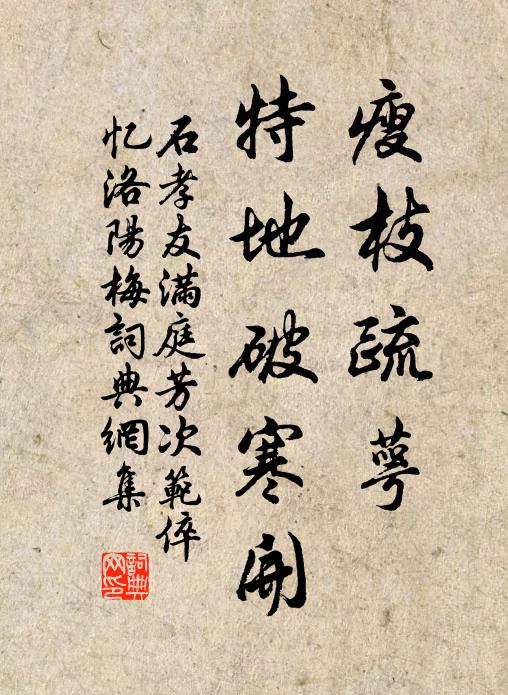 瘦枝疏萼
特地破寒開
石孝友滿庭芳次範倅
忆洛陽梅詞典網集
詞典網印